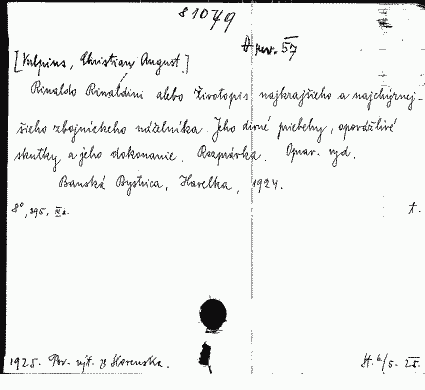 81079
D nov. 57
[Vulpius, Christian August.]
Rinaldo Rinaldini alebo životopis najkrajšieho a najchýrnej-
šieho zbojníckeho náčelníka. Jeho divné priebehy, opovážlivé
skutky a jeho dokonanie. Rozprávka. Oprav. vyd.
Banská Bystrica, Havelka, 1924.
8°, 395,
t.
1925. Pov. výt. zo Slovenska.